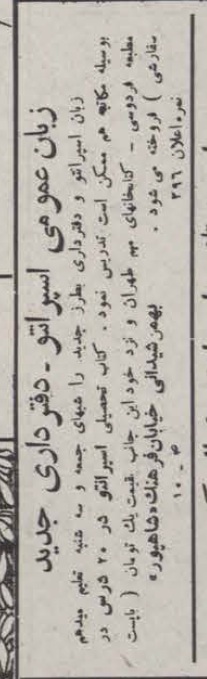 زبان عمومی اسپرانتو - دفتر داری جدید
زبان اسپرانتو و دفترداری بطرز جدید را شبهای جمعه و سه شنبه تعلیم میدهم
بوسیله مکاتبه هم ممکن است تدریس نمود . کتاب تحصیلی اسپرانتو در ۲۰ درس در
مطبعه فردوسی - کتابخانهای مهم طهران و نزد خود این جانب قیمت یک تومان ( بایست
سفارشی ) فروخته می شود . بهمن شیدانی خیابان فرهنگ «شاهپور»
نمره اعلان ۳۹۶
۱۰ - ۳